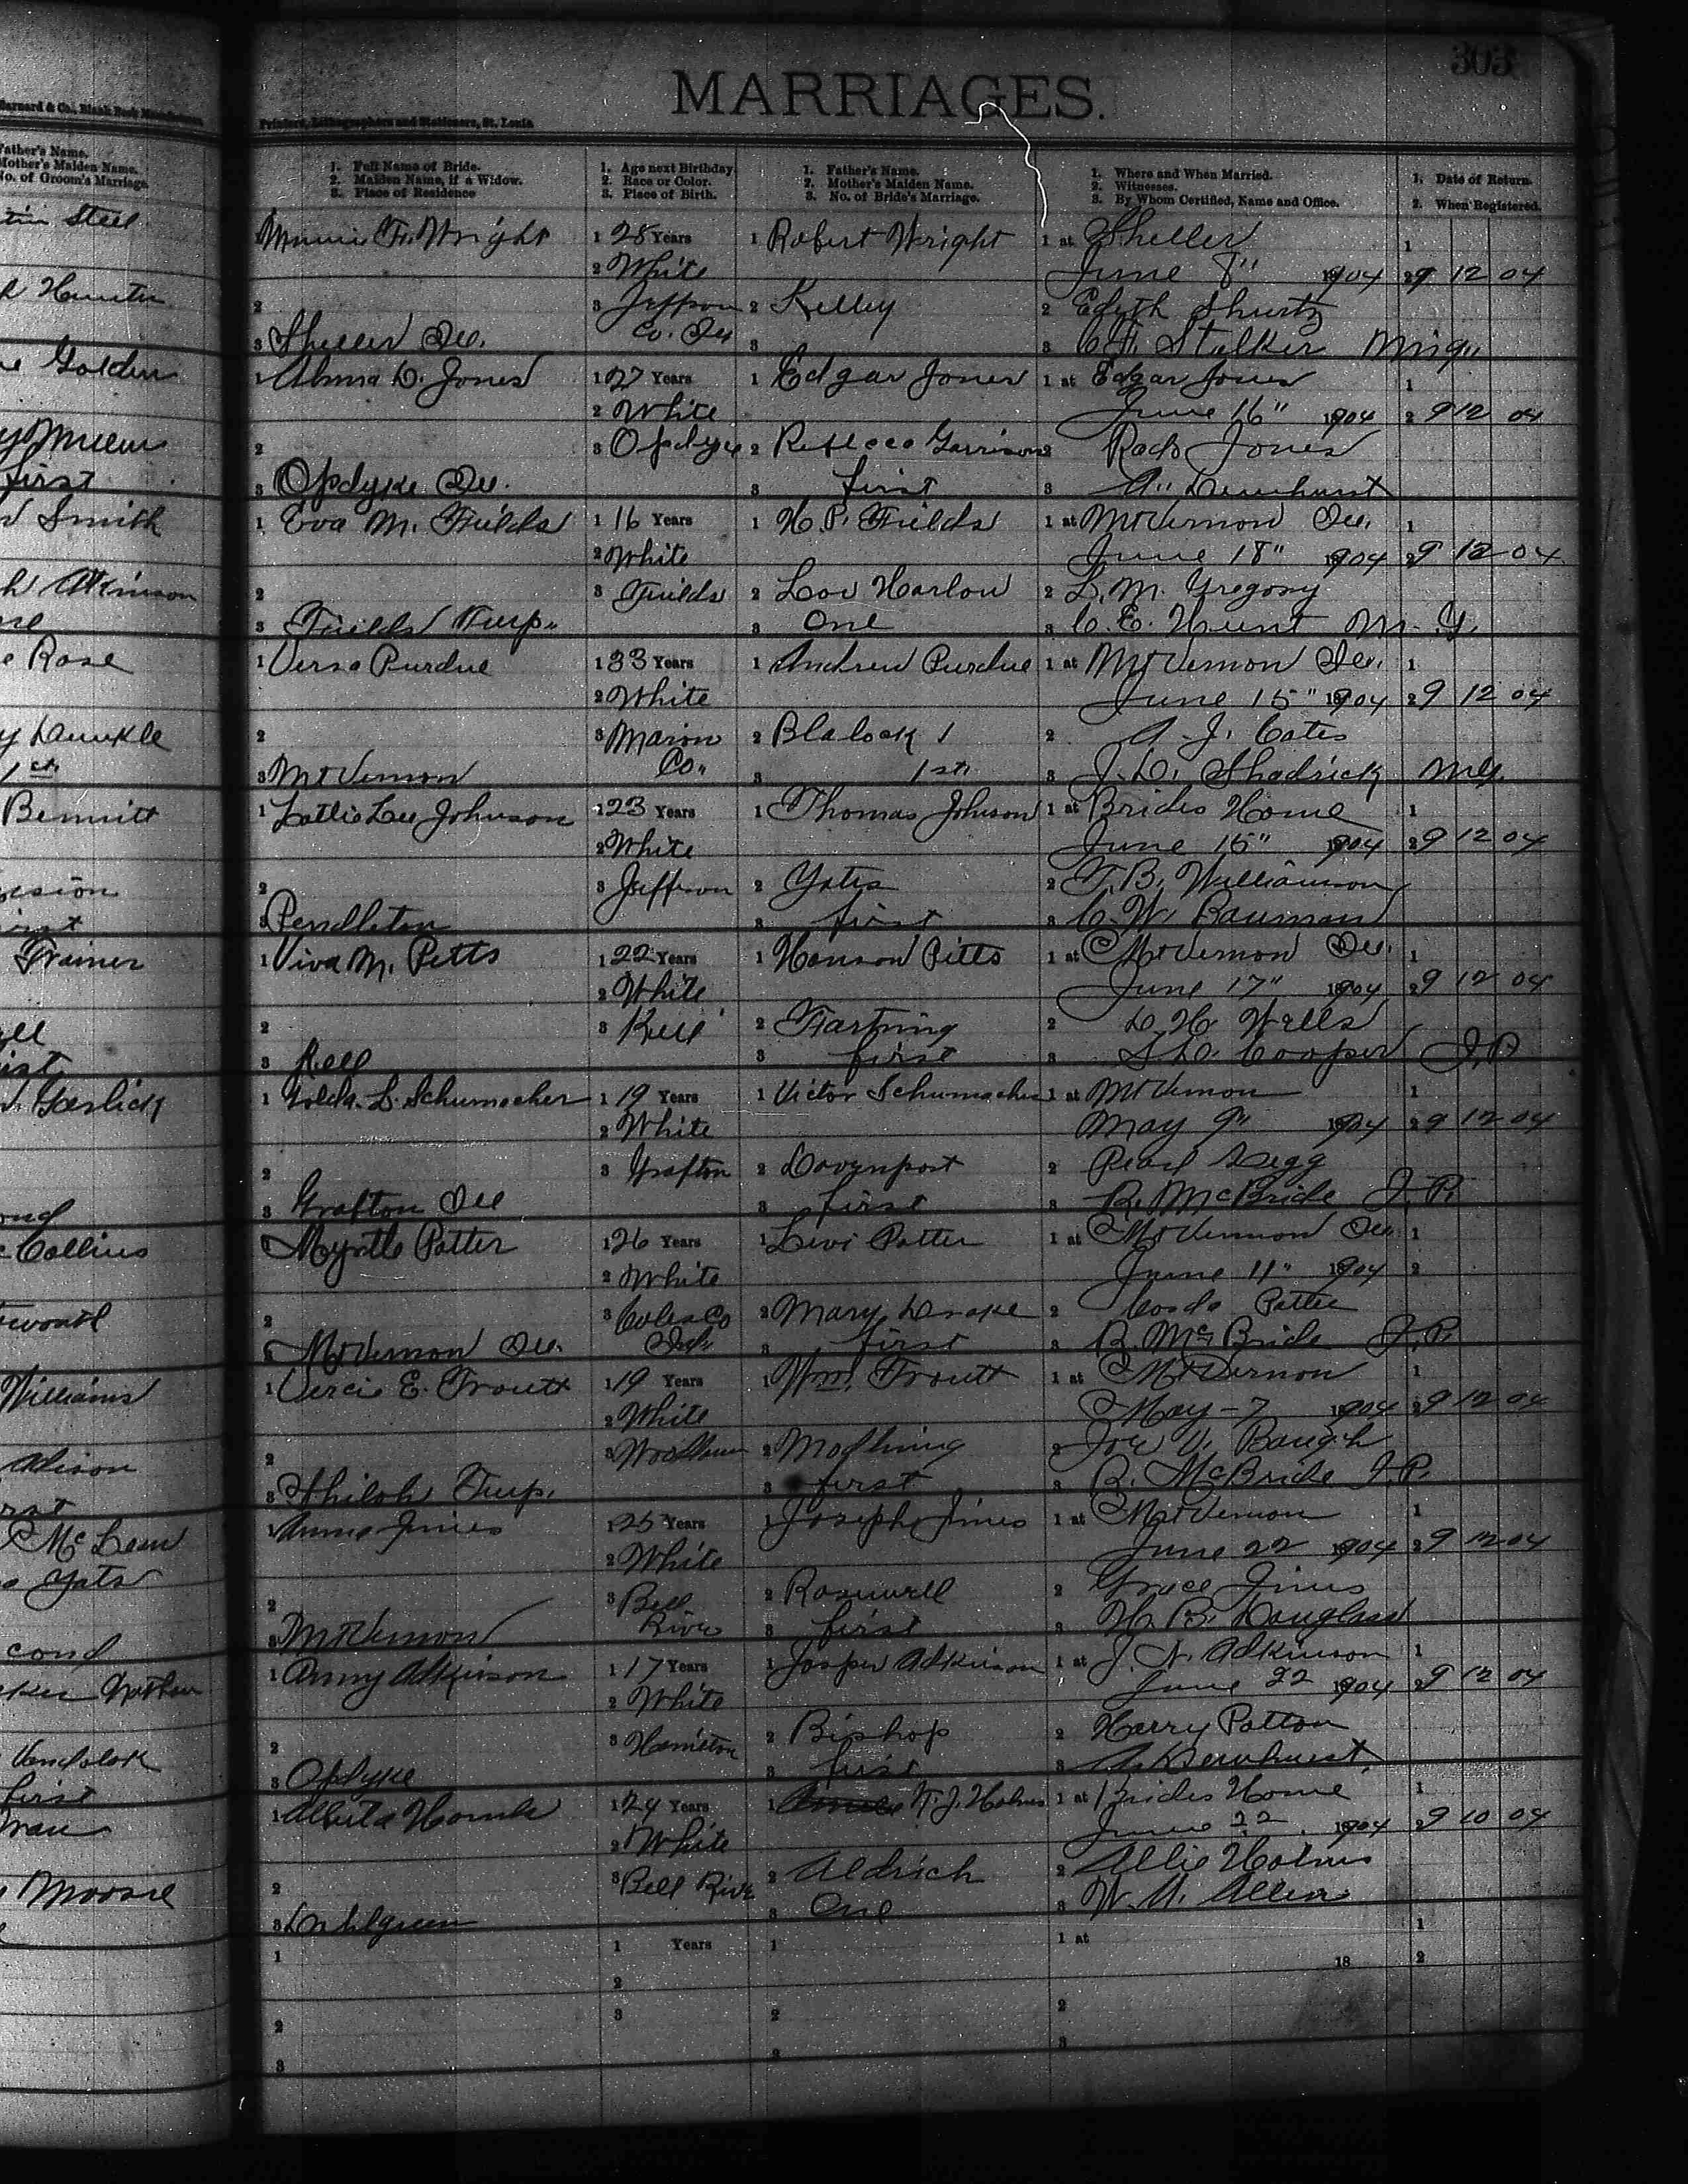 303
MARRIAGES.
Barnard & Co., Blank Book Manufacturers,
Printers, Lithographers and Stationers, St. Louis.
Father's Name.
Mother's Maiden Name.
No. of Groom's Marriage.
1. Full Name of Bride.
2. Maiden Name, if a Widow.
3. Place of Residence
1. Age next Birthday
2. Race or Color.
3. Place of Birth.
1. Father's Name.
2. Mother's Maiden Name.
3. No. of Bride's Marriage.
1. Where and When Married.
2. Witnesses.
3. By Whom Certified, Name and Office.
1. Date of Return.
2. When Registered.
Steel
Golden
first
Smith
Rose
Dunkle
1st
Bennitt
Frainer
Garlick
Collins
Williams
McLean
Yats
cond
first
Moore
1 Minnie F. Wright 1 28 Years 1 Robert Wright 1 at Sheller 1
2 White June 8" 1904 2 9 12 04
2 3 Jeffson 2 Kelley 2 Edyth Shurtz
3 Sheller Ill. Co. Ill 3 3 C.F. Stalker
1 Alma D. Jones 1 27 Years 1 Edgar Jones 1 at Edgar Jones 1
2 White June 16" 1904 2 9 12 04
2 3 Opdyke 2 Rebecca Garrison 2 Jones
3 Opdyke Ill. 3 first 3
1 Eva M. Fields 1 16 Years 1 H. P. Fields 1 at Mt Vernon Ill. 1
2 White June 18" 1904 2 9 12 04
2 3 Fields 2 Lou Harlow 2 L. M. Gregory
3 Fields Twp. 3 One 3 C. E. Hunt M. G.
1 Versa Purdue 1 33 Years 1 Andrew Purdue 1 at Mt Vernon Ill. 1
2 White June 15" 1904 2 9 12 04
2 3 Marion 2 Blalock 1 2 A. J. Cates
3 Mt Vernon Co. 3 1st 3 J. D. Shadrick M.G.
1 Lottie Lee Johnson 1 23 Years 1 Thomas Johnson 1 at Brides Home 1
2 White June 15" 1904 2 9 12 04
2 3 Jeffson 2 Yates 2 T. B. Williamson
3 Pendleton 3 first 3 C. W. Bauman
1 Viva M. Pitts 1 22 Years 1 Hanson Pitts 1 at Mt Vernon Ill. 1
2 White June 17" 1904 2 9 12 04
2 3 Kell 2 Farthing 2 D. H. Wells
3 Kell 3 first 3 S. D. Cooper J.P
1 Golda. L. Schumacher 1 19 Years 1 Victor Schumacher 1 at Mt Vernon 1
2 White May 9" 1904 2 9 12 04
2 3 Grafton 2 Davenport 2 Pearl Legg
3 Grafton Ill 3 first 3 R. McBride J. P.
1 Myrtle Patter 1 26 Years 1 Levi Patter 1 at Mt Vernon Ill. 1
2 White June 11" 1904 2
2 3 Coles Co 2 Mary Drake 2 Patter
3 Mt Vernon Ill. 3 first 3 R. McBride J. P.
1 Vercie E. Troutt 1 19 Years 1 Wm. Troutt 1 at Mt Vernon 1
2 White May - 7 1904 2 9 12 04
2 3 Woodlawn 2 2 Joe V. Baugh
3 Shiloh Twp. 3 first 3 R. McBride J.P.
1 Anna Jines 1 25 Years 1 Joseph Jines 1 at Mt Vernon 1
2 White June 22 1904 2 9 12 04
2 3 Bell 2 2 Grace Jines
3 Mt Vernon Rive 3 first 3 H. B. Douglass
1 Anny Adkinson 1 17 Years 1 Josper Adkinson 1 at J. N. Adkinson 1
2 White June 22 1904 2 9 12 04
2 3 Hamilton 2 Bishop 2 Harry Patton
3 Opdyke 3 first 3
1 Alberta 1 24 Years 1 T. J. Holmes 1 at Brides Home 1
2 White June 22 1904 2 9 10 04
2 3 Bell Rive 2 Aldrich 2 Allie Holmes
3 Dahlgreen 3 One 3 W. A. Allen
1 1 Years 1 1 at 1
2 18 2
2 3 2 2
3 3 3